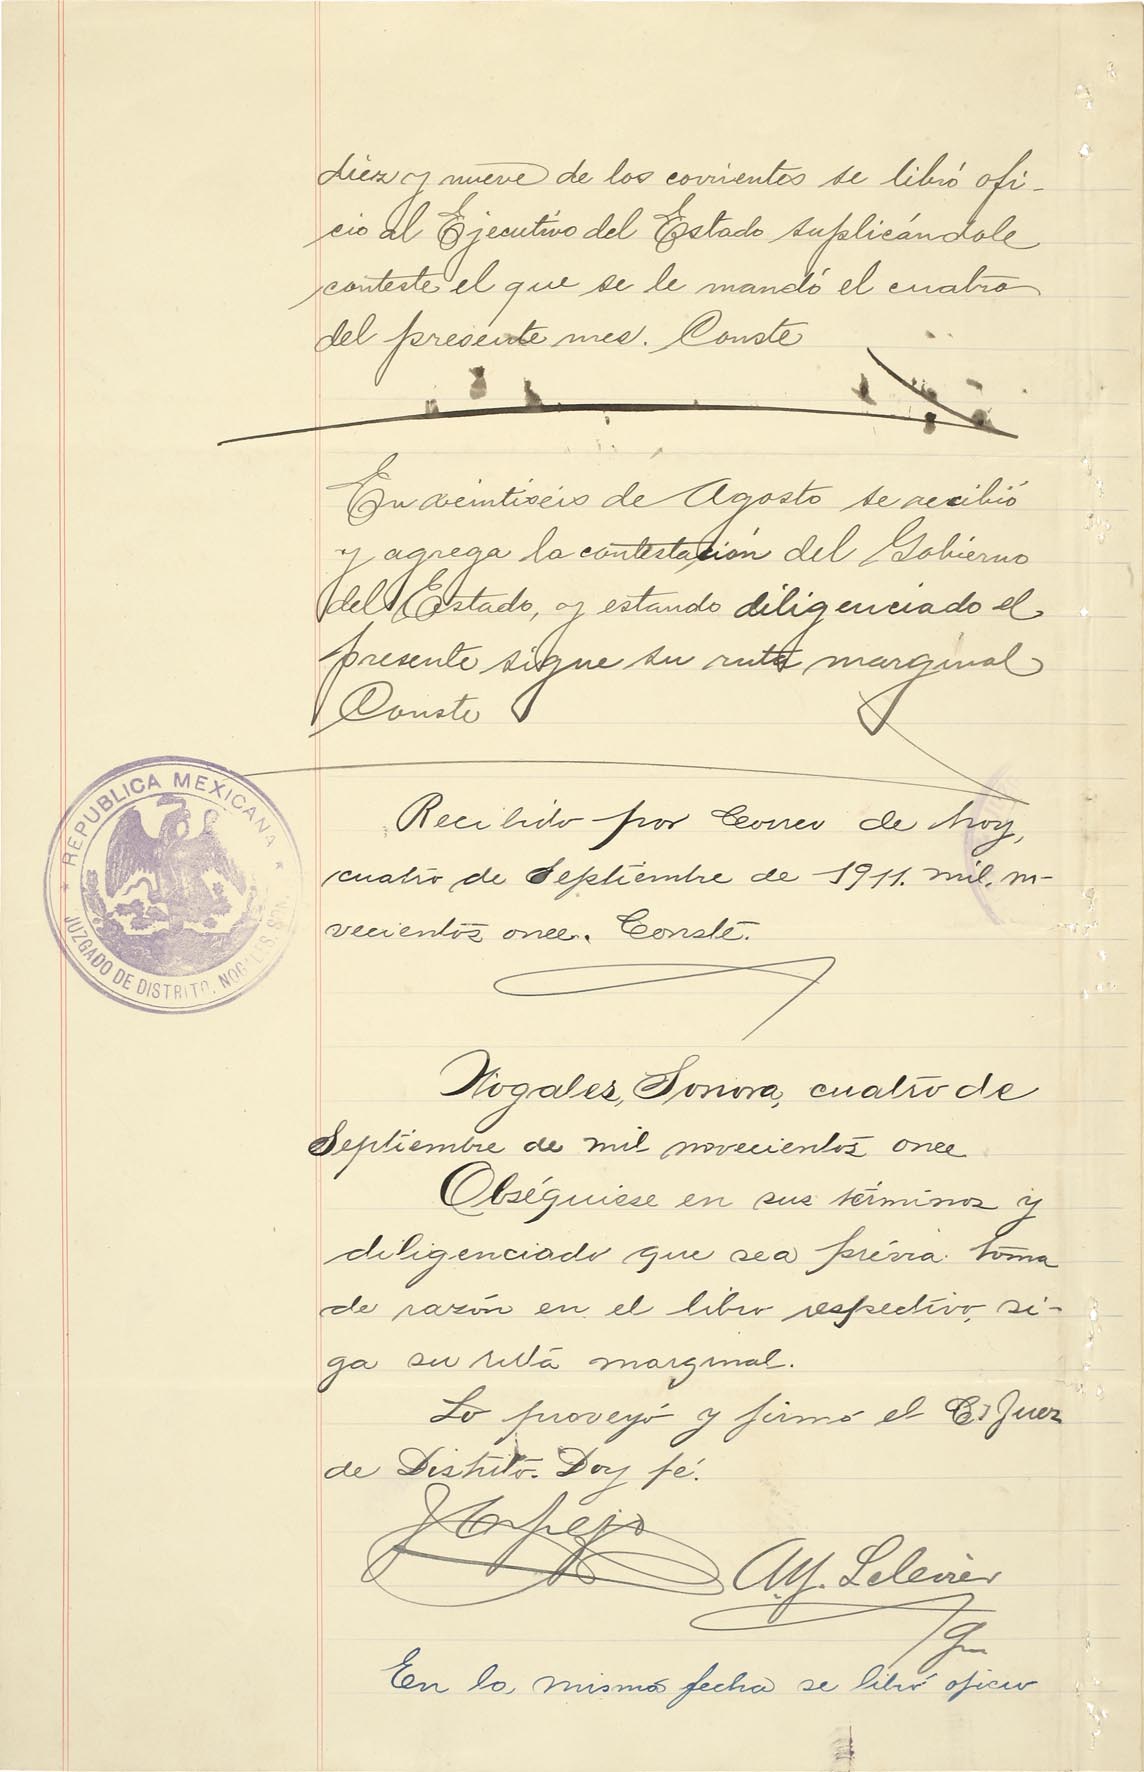 diez y nueve de los corrientes se libró ofi-
cio al Ejecutivo del Estado suplicándole
conteste el que se le mandó el cuatro
del presente mes. Conste
En veintiseis de Agosto se recibió
y agrega la contestación del Gobierno
del Estado, y estando diligenciado el
presente sigue su ruta marginal
Conste
REPUBLICA MEXICANA
JUZGADO DE DISTRITO, NOGALES, SON.
Recibido por Correo de hoy,
cuatro de Septiembre de 1911. mil. no-
vecientos once. Conste.
Nogales, Sonora, cuatro de
Septiembre de mil novecientos once
Obséquiese en sus términos y
diligenciado que sea prévia toma
de razón en el libro respectivo, si-
ga su ruta marginal.
Lo proveyó y firmó el C. Juez
de Distrito. Doy fé.
A. Y. Lelevier
En la misma fecha se libró oficio